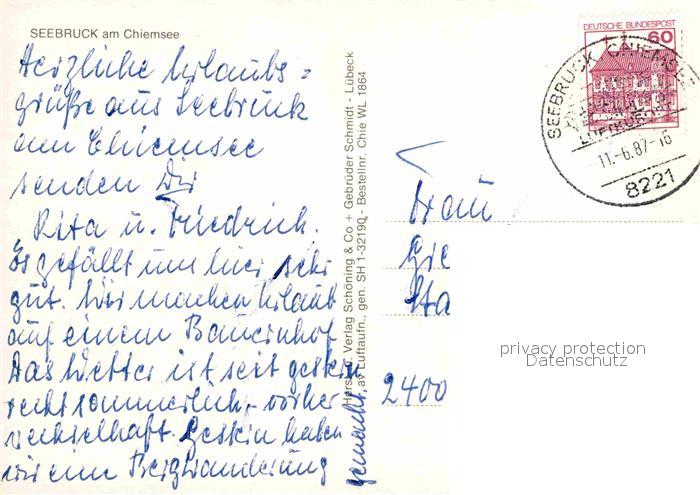 SEEBRUCK am Chiemsee
Herzliche Urlaubs-
grüße aus Seebruck
am Chiemsee
senden Dir
Rita u. Friedrich.
Es gefällt uns hier sehr
gut. Wir machen Urlaub
auf einem Bauernhof.
Das Wetter ist seit gestern
recht sommerlich, vorher
wechselhaft. Gestern haben
wir eine Bergwanderung
gemacht.
Verlag Schöning & Co + Gebrüder Schmidt - Lübeck
Luftaufn., gen. SH 1-32190 - Bestellnr. Chie WL 1864
DEUTSCHE BUNDESPOST
60
SEEBRUCK, CHIEMSEE
LUFTKURORT
11.-6.87-16
8221
Frau
2400
privacy protection
Datenschutz